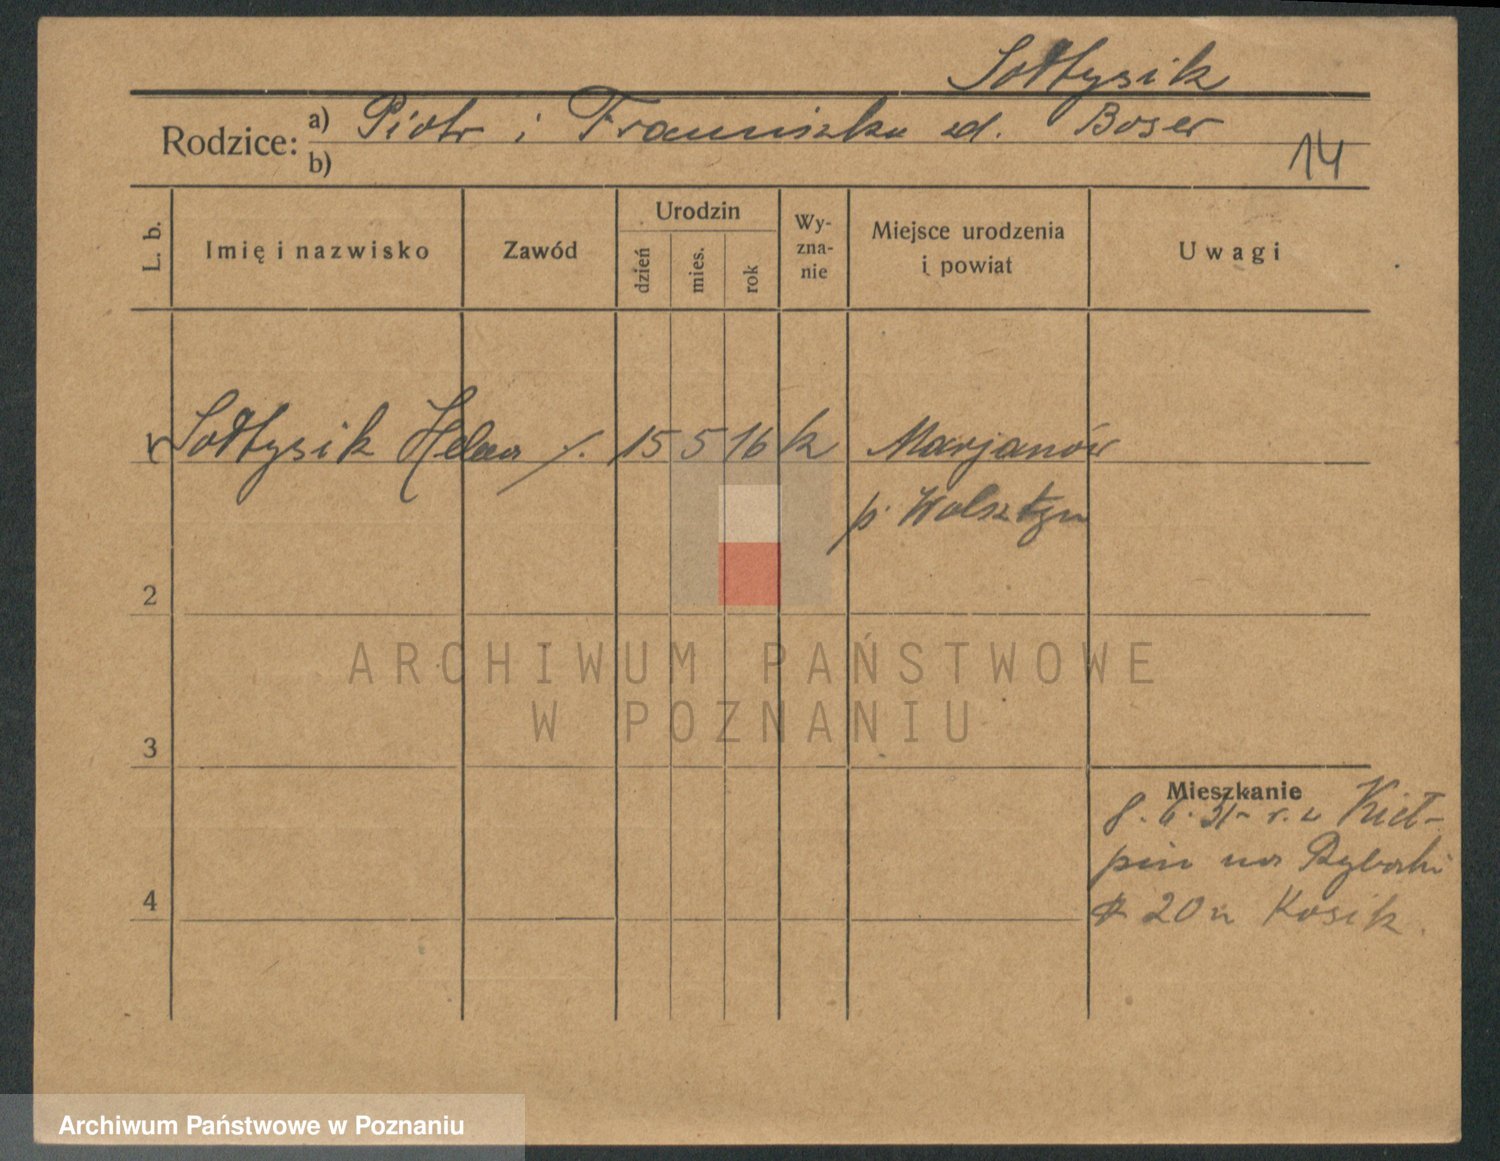 Sołtysik
Rodzice: a) Piotr i Franciszka zd. Boser
b)
14
L. b.
Imię i nazwisko
Zawód
Urodzin
dzień
mies.
rok
Wy-
zna-
nie
Miejsce urodzenia
i powiat
Uwagi
1 Sołtysik Helena 15 5 16 k Marjanów
p. Wolsztyn
2
3
4
ARCHIWUM PAŃSTWOWE
W POZNANIU
Mieszkanie
8. 6. 31 r. z Kieł-
pin na Rybaki
20 u Kosik.
Archiwum Państwowe w Poznaniu